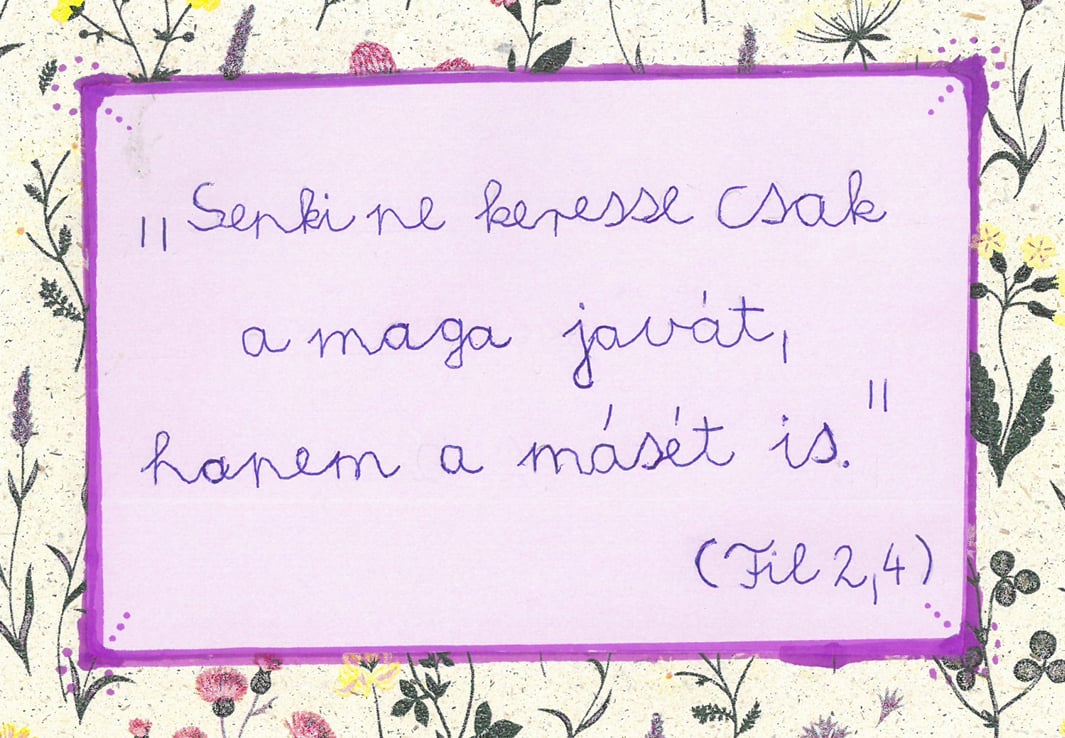 "Senki ne keresse csak
a maga javát,
hanem a másét is."
(Fil 2,4)